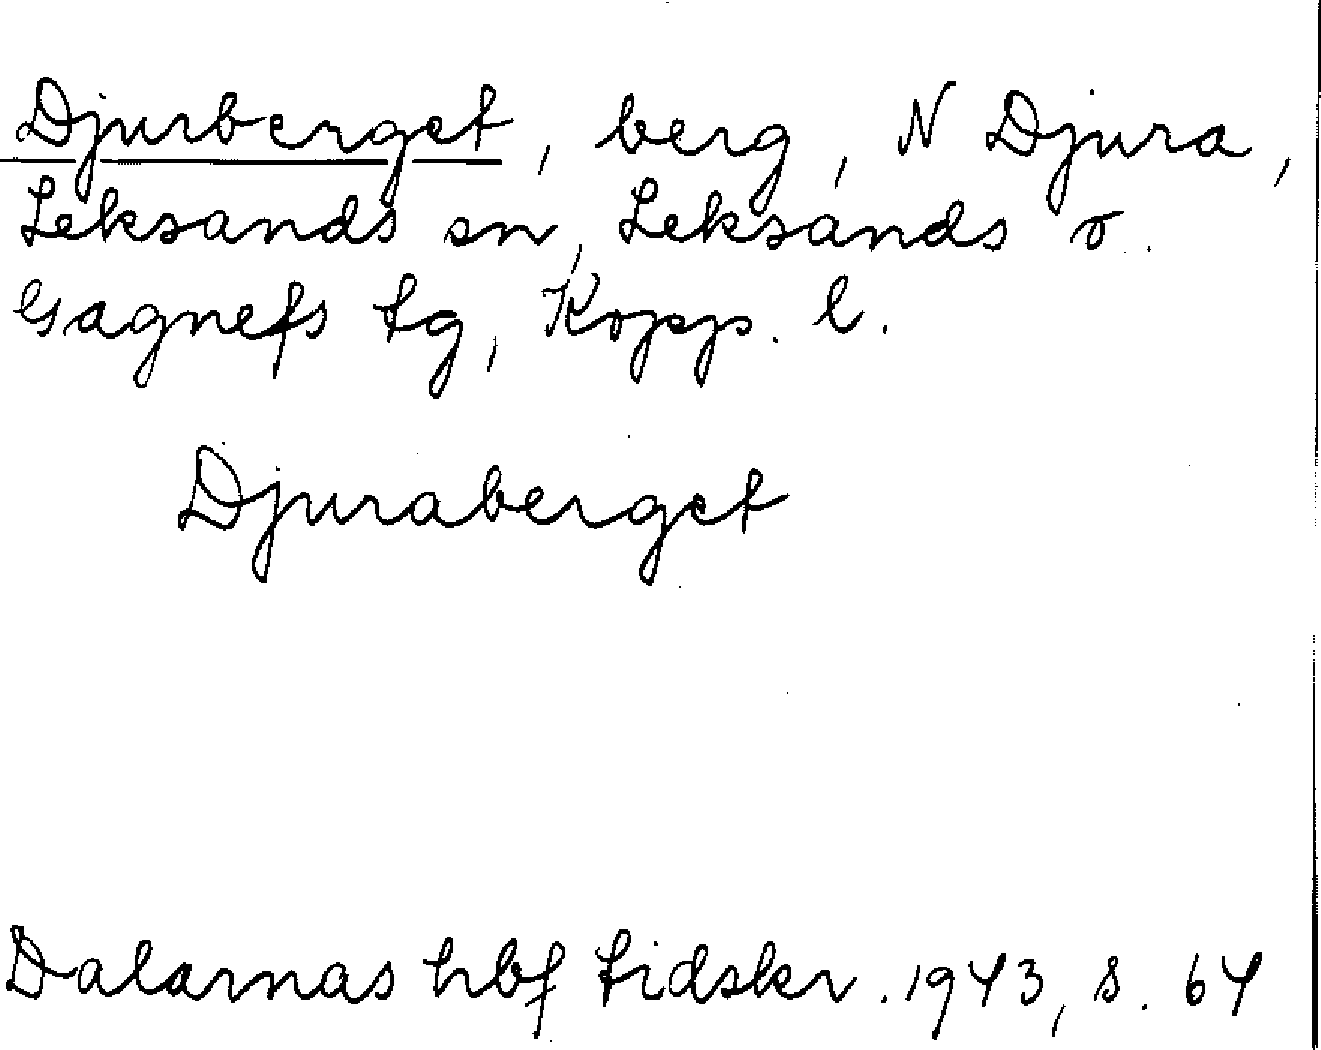 Djurberget, berg, N Djura,
Leksands sn, Leksands o.
Gagnefs tg, Kopp. l.
Djuraberget
Dalarnas hbf tidskr. 1943, s. 64